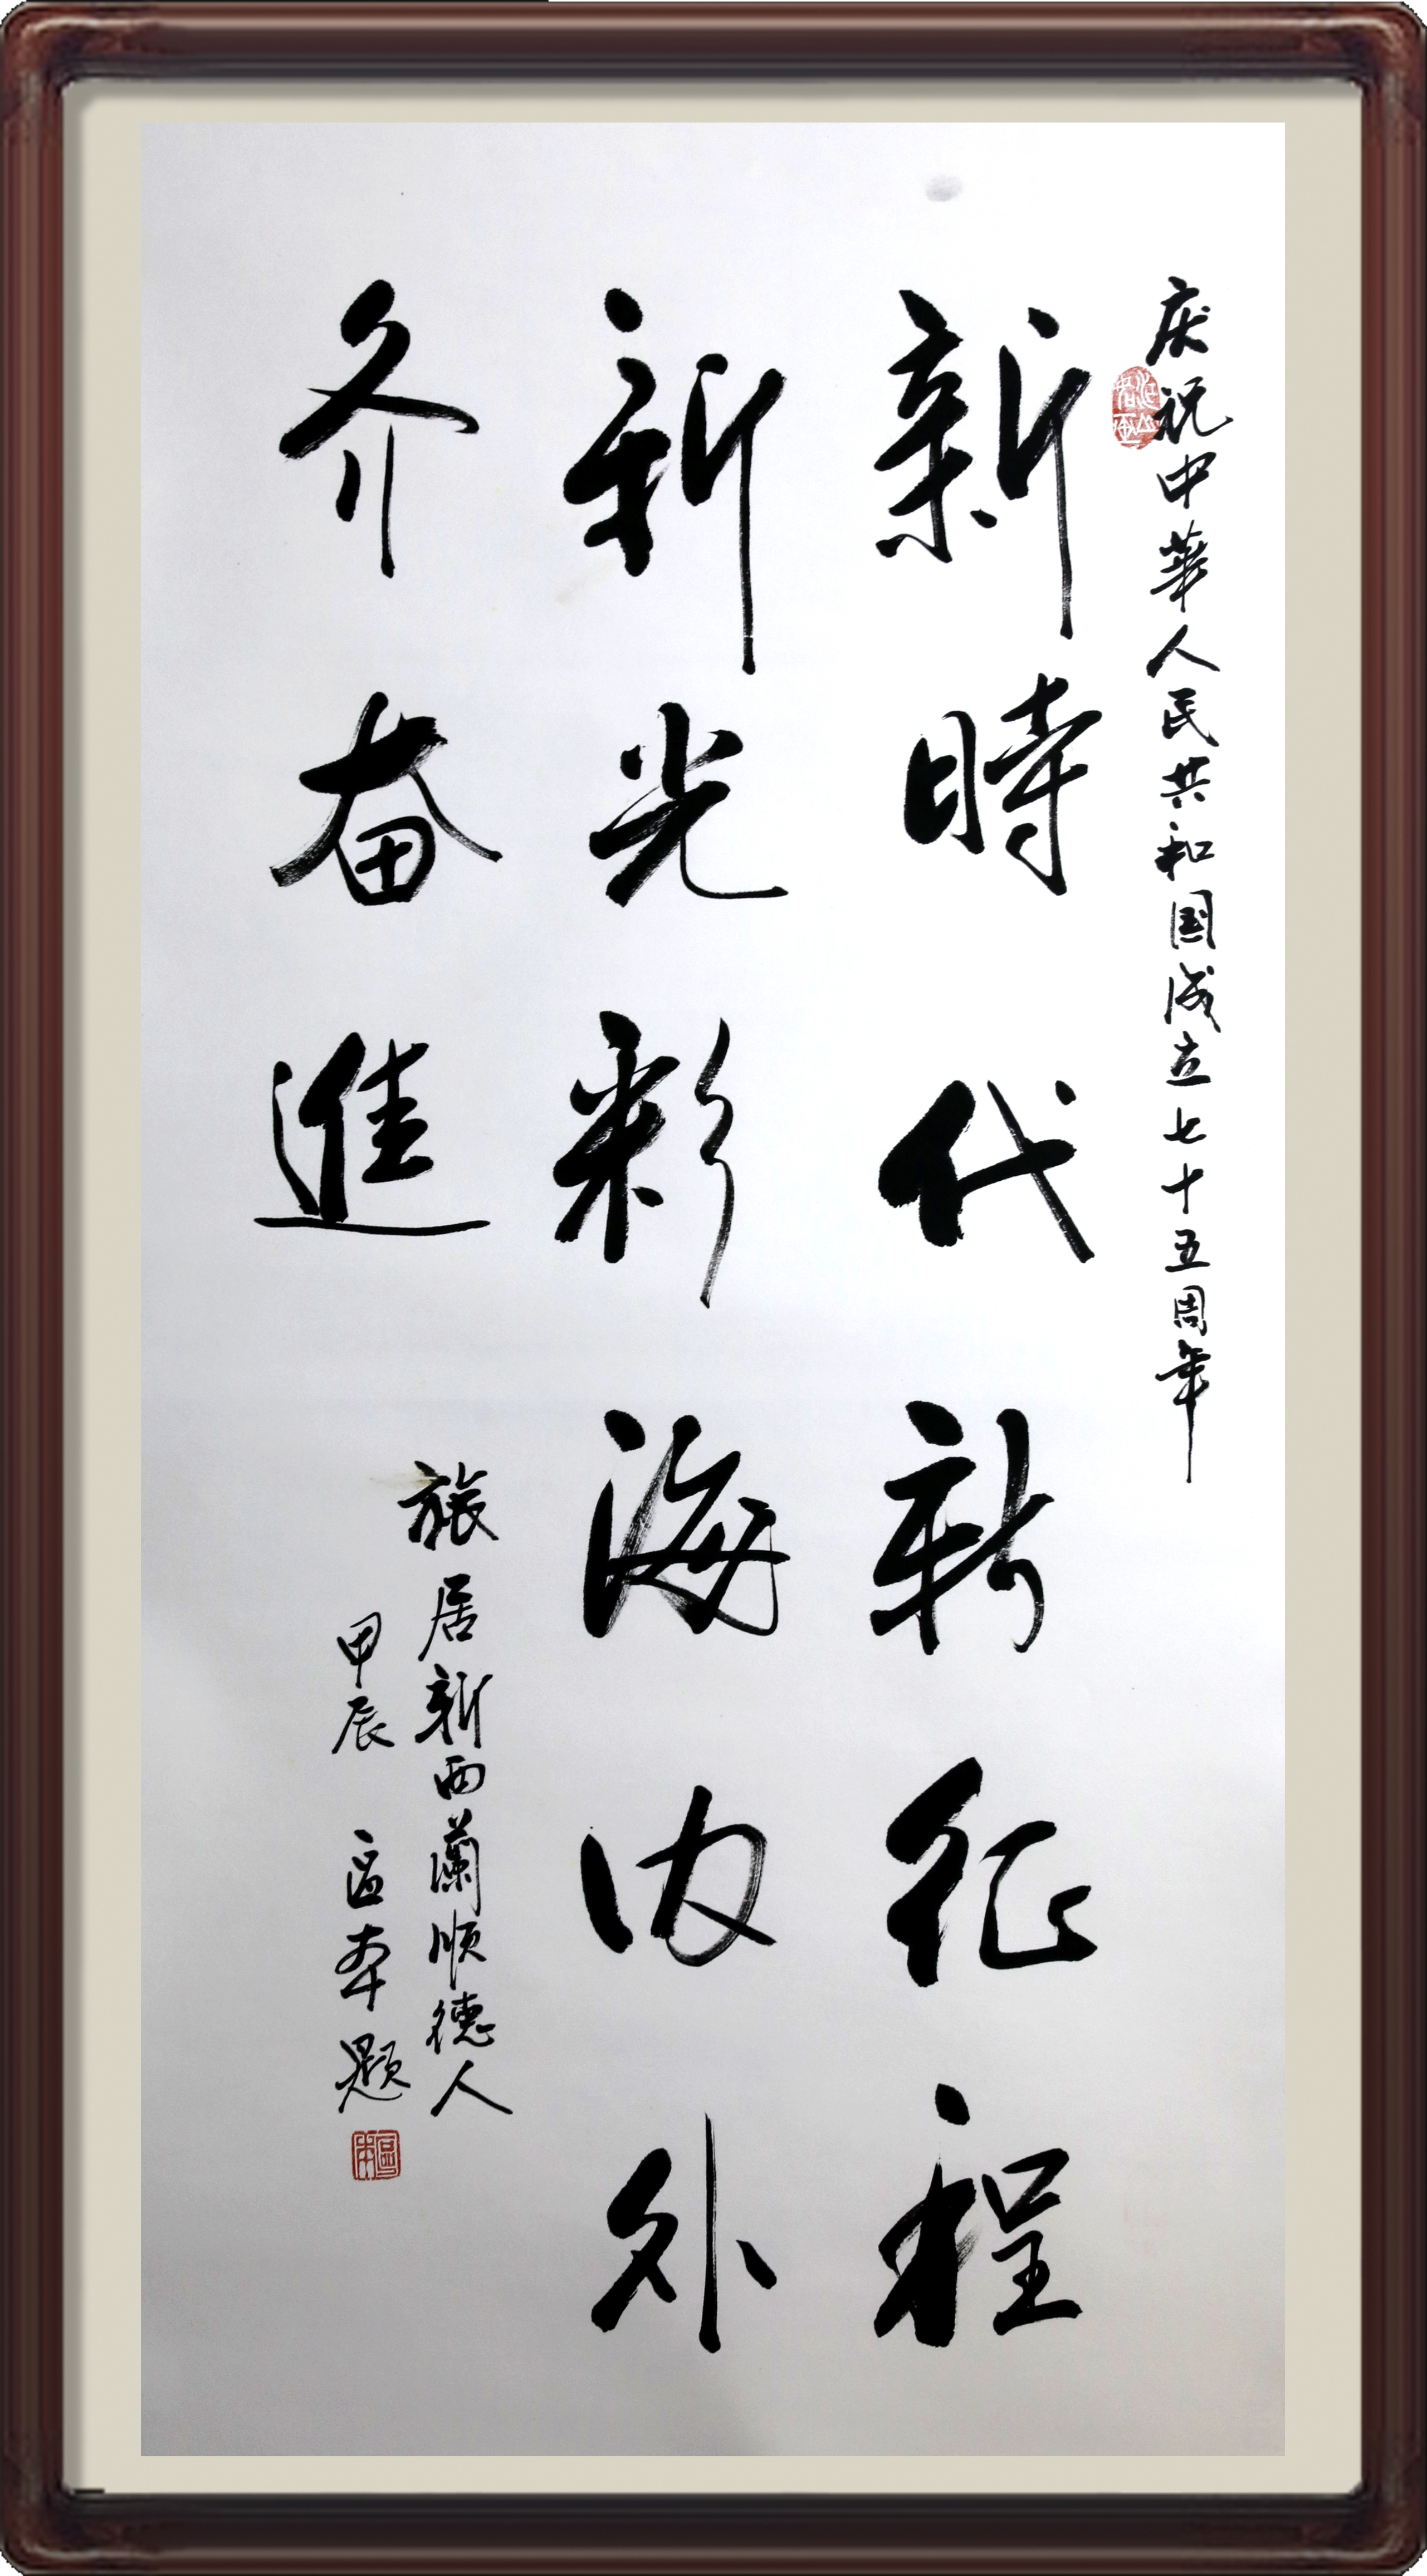 庆祝中華人民共和国成立七十五周年
新時代新征程
新光彩海内外
齐奋進
旅居新西蘭順德人
甲辰 區本题